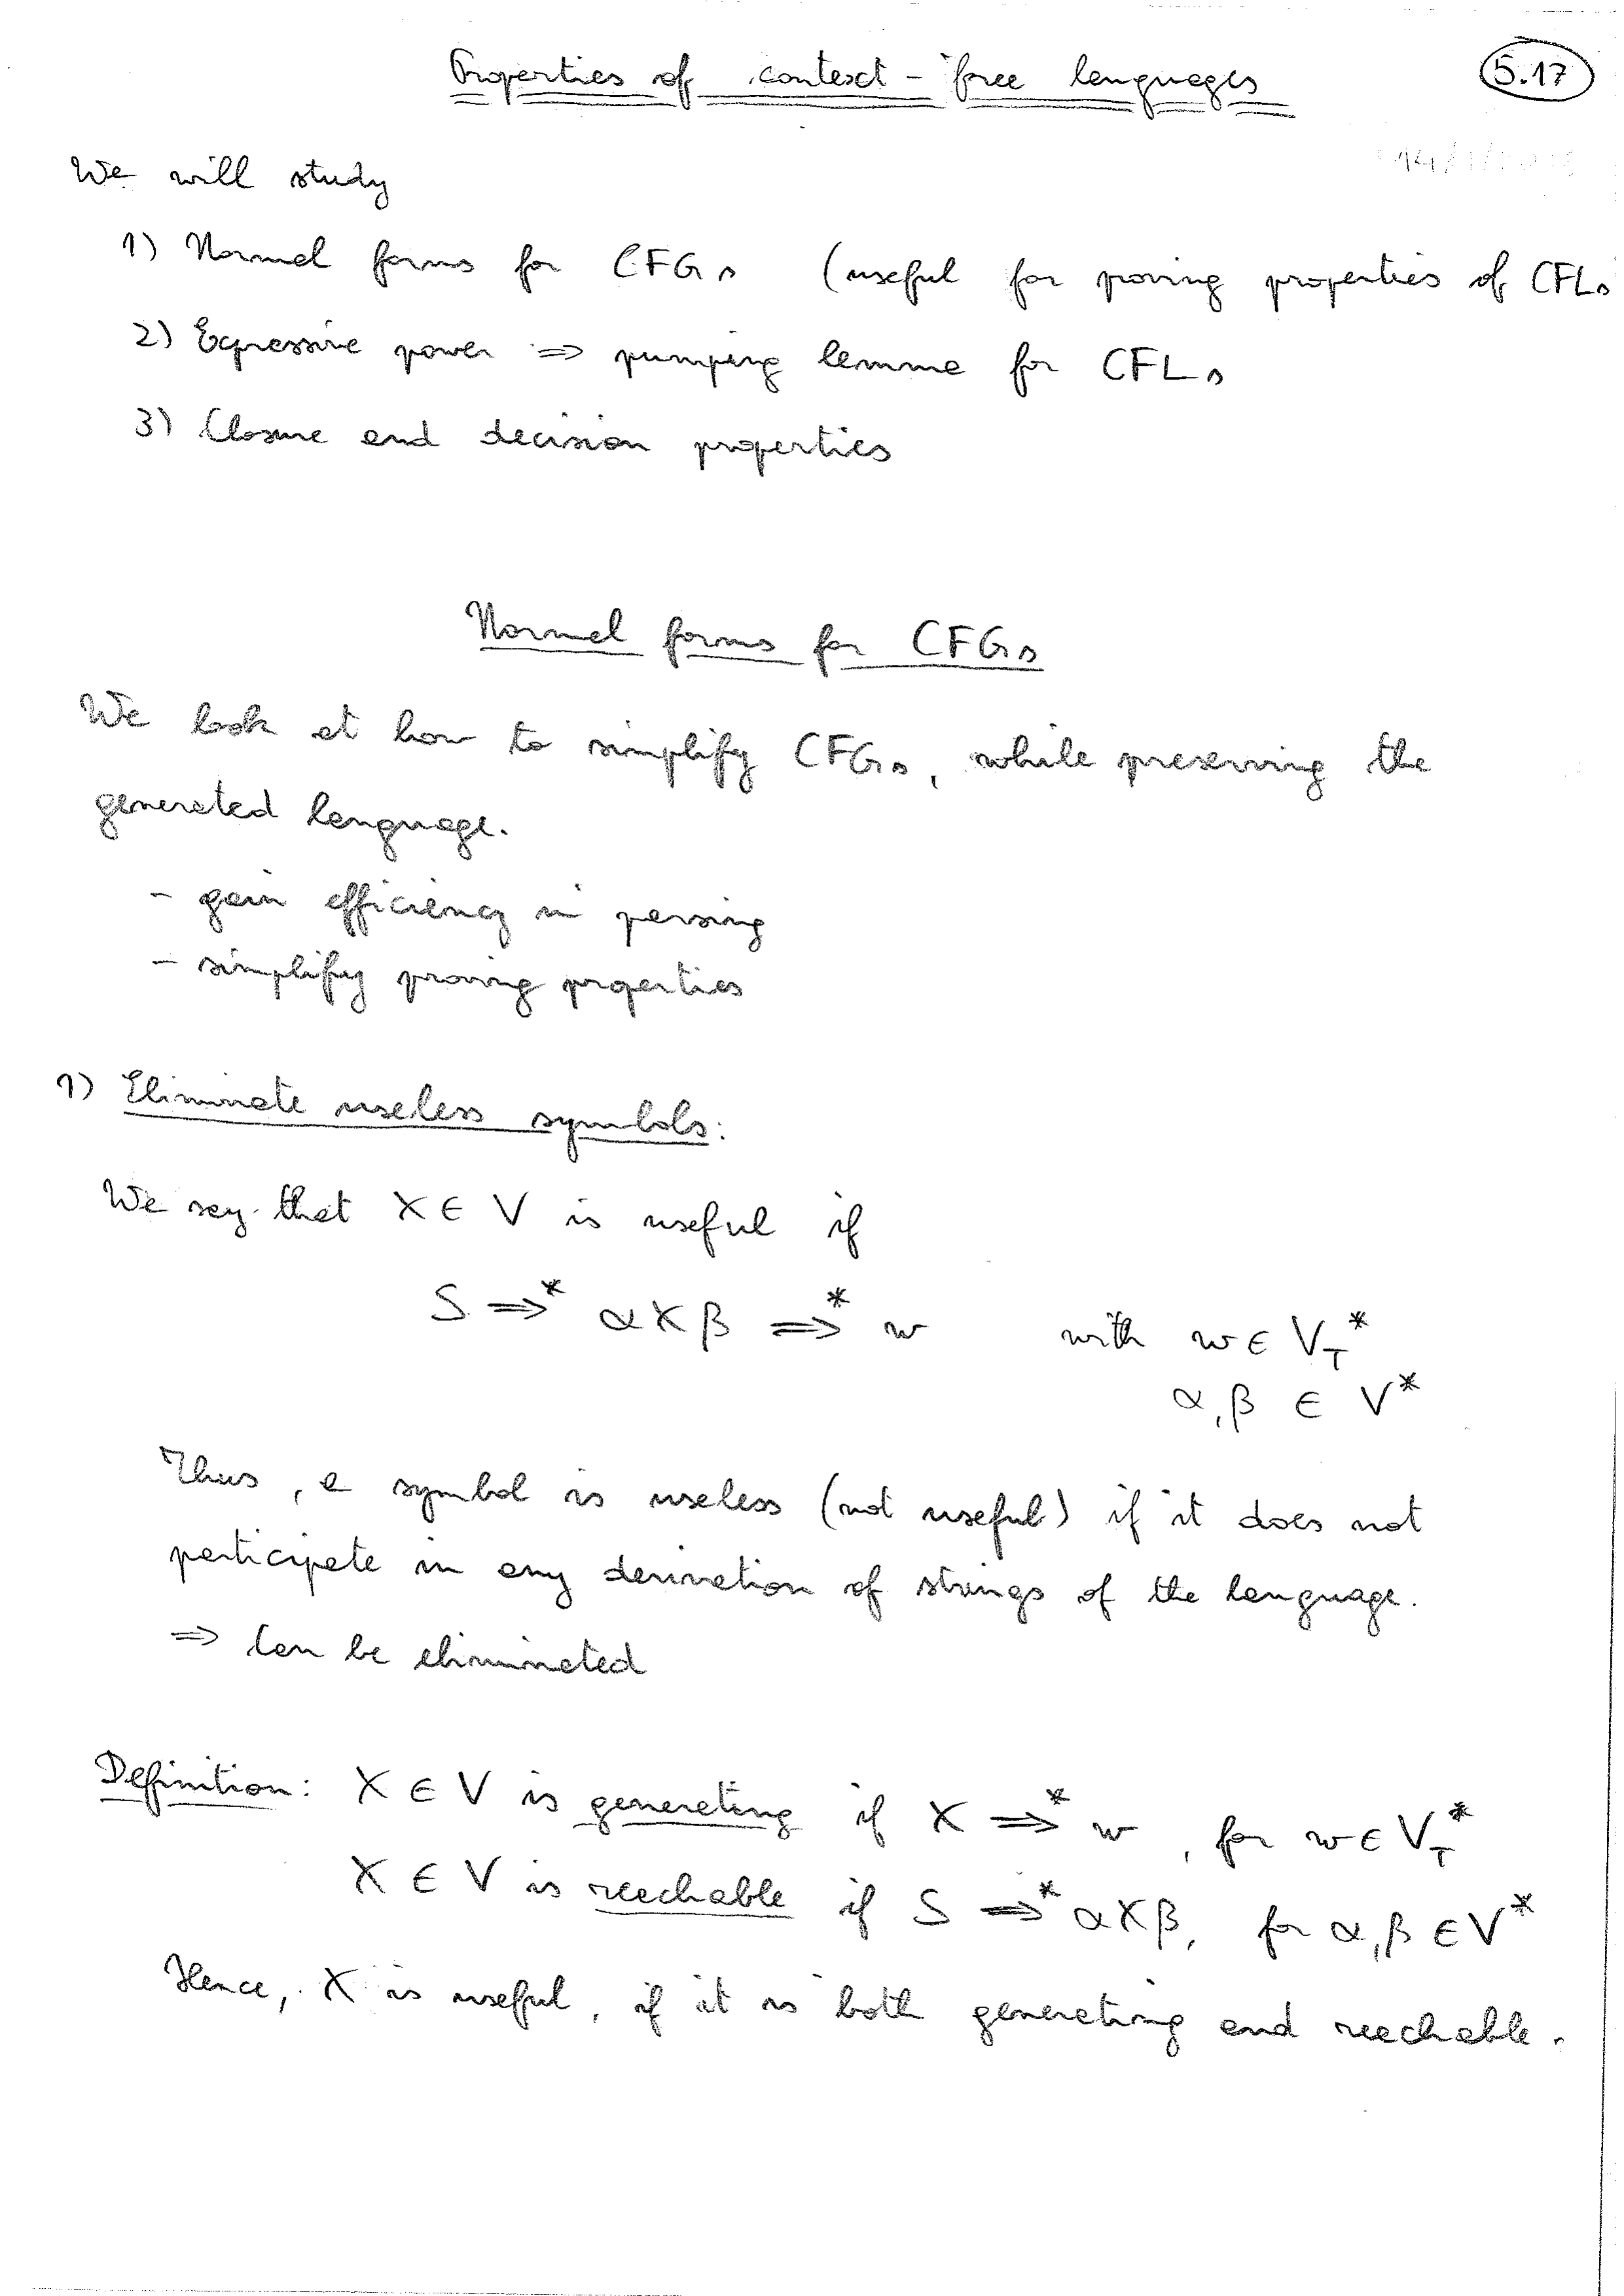 Properties of context-free languages
5.17
We will study
1) Normal forms for CFGs (useful for proving properties of CFLs
2) Expressive power ⇒ pumping lemma for CFLs
3) Closure and decision properties
Normal forms for CFGs
We look at how to simplify CFGs, while preserving the
generated language.
- gain efficiency in parsing
- simplify proving properties
1) Eliminate useless symbols:
We say that X ∈ V is useful if
S ⇒* α X β ⇒* w with w ∈ V_T*
α, β ∈ V*
Thus, a symbol is useless (not useful) if it does not
participate in any derivation of strings of the language.
⇒ Can be eliminated
Definition: X ∈ V is generating if X ⇒* w, for w ∈ V_T*
X ∈ V is reachable if S ⇒* α X β, for α, β ∈ V*
Hence, X is useful, if it is both generating and reachable.